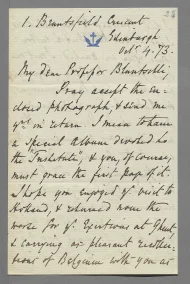 1. Bruntsfield Crescent
Edinburgh
Oct. 4. 73.
My dear Professor Bluntschli,
Pray accept the en-
closed photograph, & send me
yrs in return. I mean to have
a special Album devoted to
the Institute, & you, of course,
must grace the first page of it.
I hope you enjoyed yr visit to
Holland, & returned none the
worse for yr Exertions at Ghent
& carrying as pleasant recollec-
tions of Belgium with you as